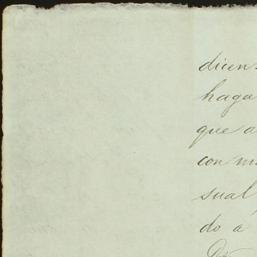 dicen
haga
que a
con m
sual
do á
De